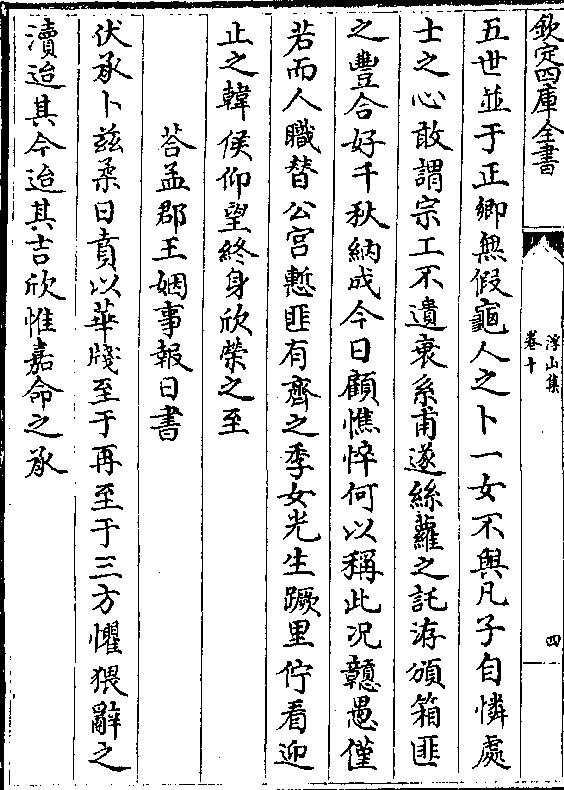 欽定四庫全書
浮山集
卷十
四
五世並于正卿無假龜人之卜一女不與凡子自憐處
士之心敢謂宗工不遺衰系甫遂絲蘿之託洊頒箱匪
之豐合好千秋納成今日顧憔悴何以稱此况戇愚僅
若而人職替公宫慙匪有齊之季女光生蹶里佇看迎
止之韓侯仰望終身欣榮之至
荅孟郡王姻事報日書
伏承卜兹柔日賁以華牋至于再至于三方懼猥辭之
瀆迨其今迨其吉欣惟嘉命之承